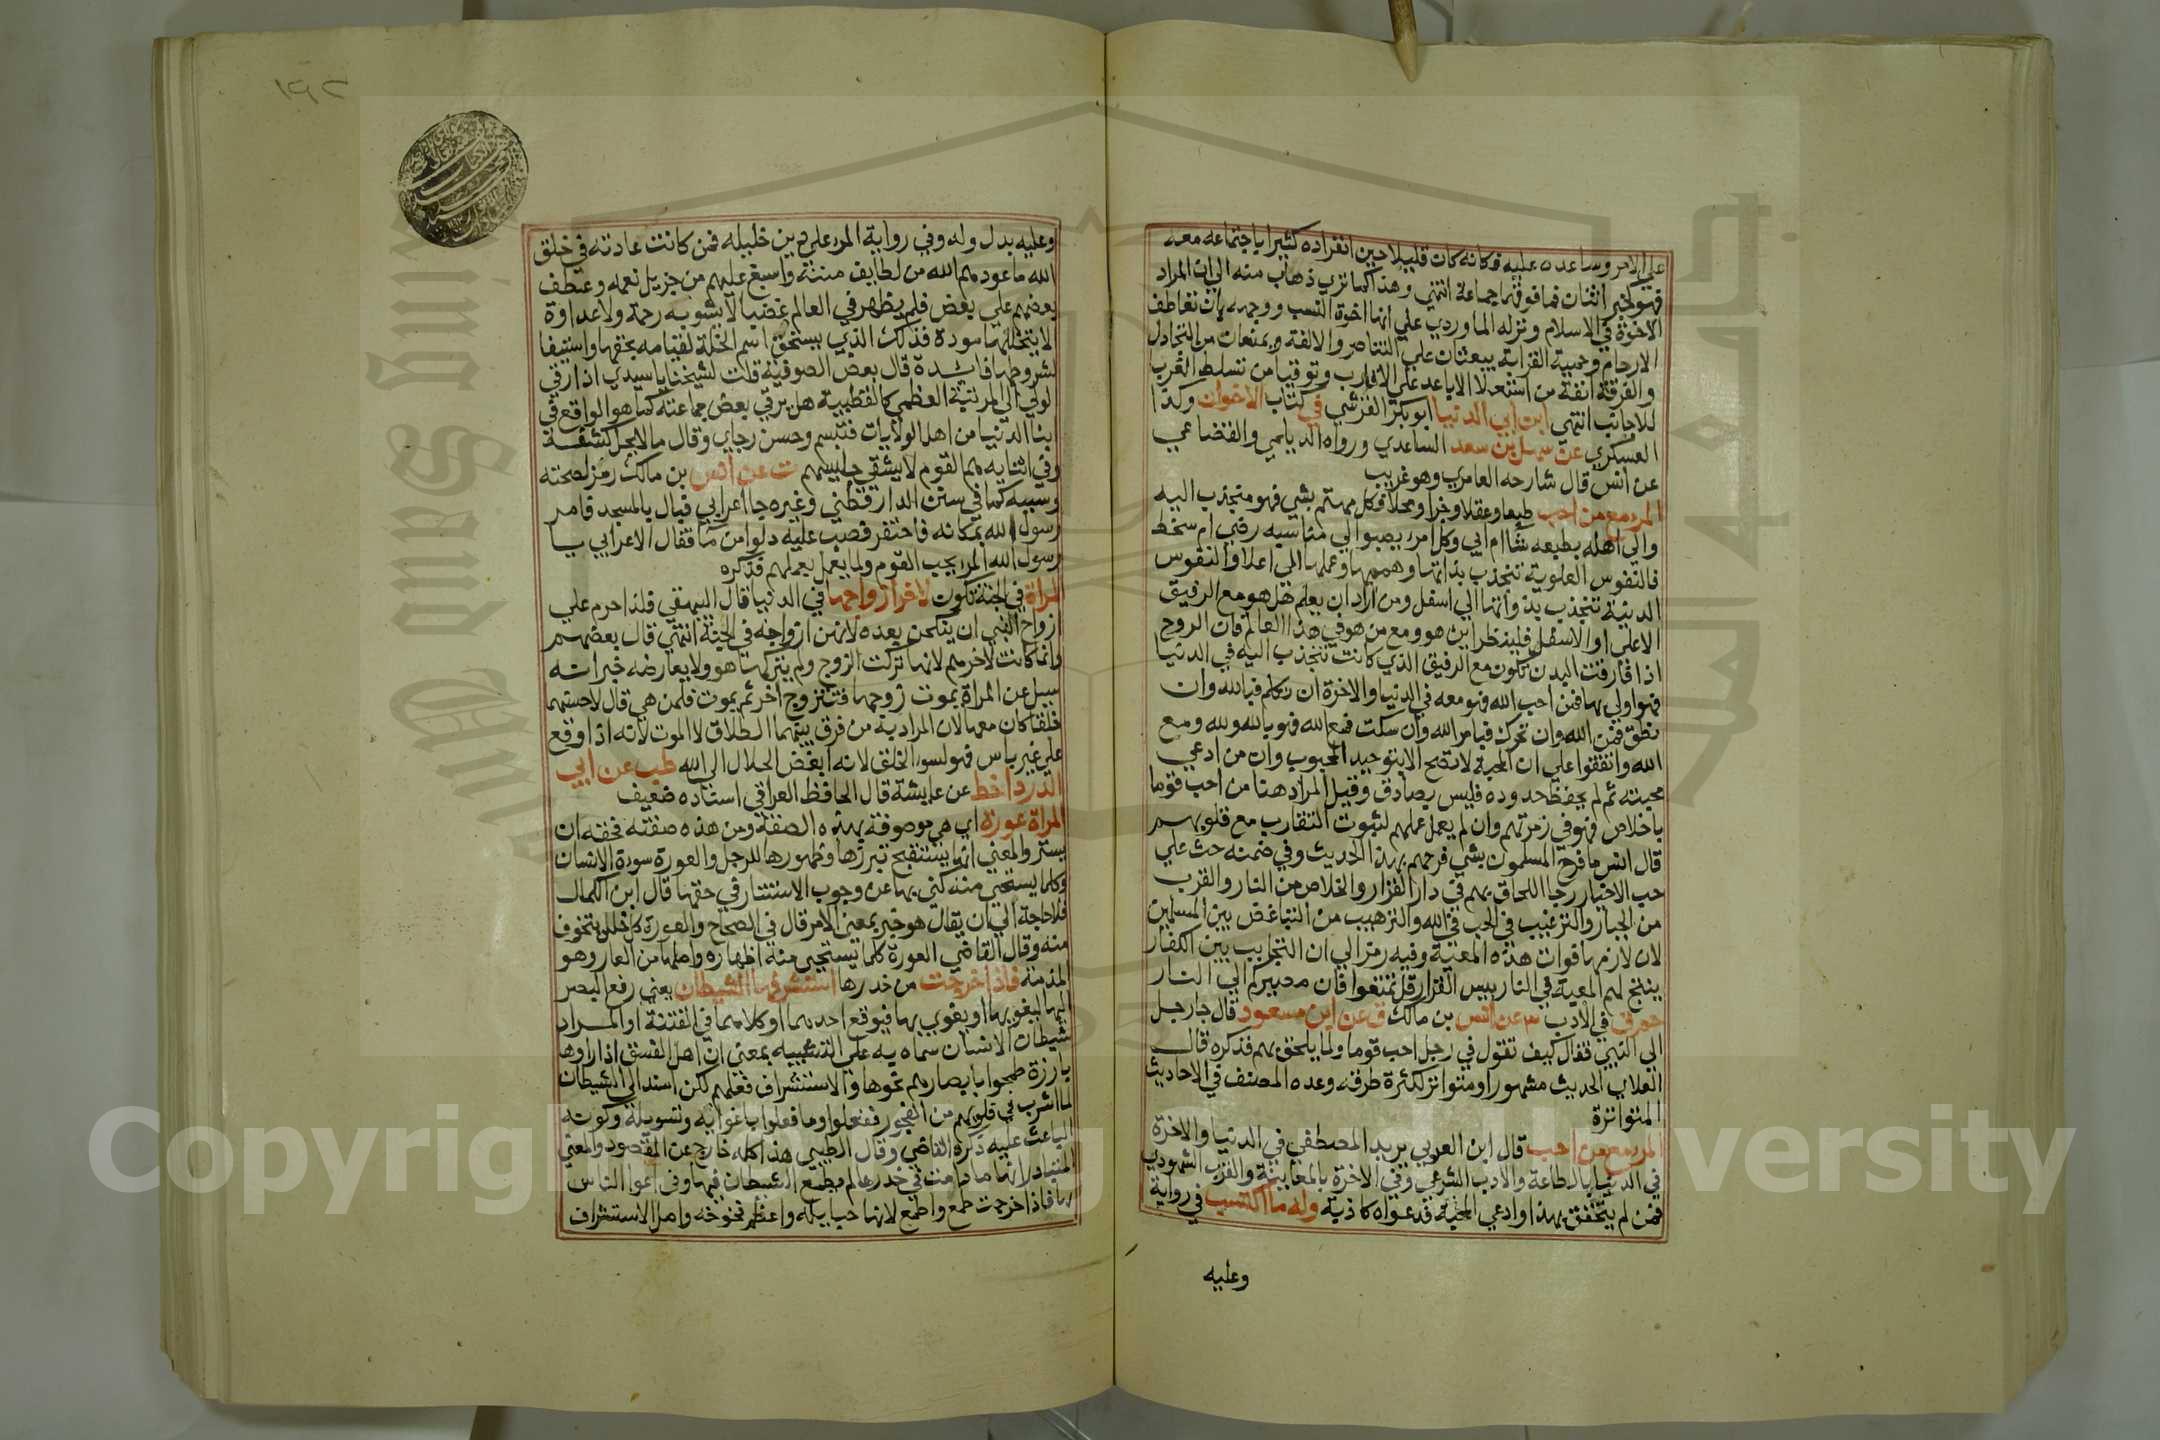 على الامر وساعده عليه فكانه كان قليلا حين انفراده كثيرا باجتماعه معه
فهو كخبر اثنان فما فوقهما جماعة انتهى وهذا كما ترى ذهاب منه الى ان المراد
الاخوة في الاسلام ونزله الماوردي على انها اخوة النسب ووجهه بان تعاطف
الارحام وحمية القرابة يبعثان على التناصر والالفة ويمنعان من التخاذل
والفرقة انفة من استعلا الاباعد على الاقارب وتوقيا من تسلط الغرب
للاجانب انتهى ابن ابي الدنيا ابو بكر القرشي في كتاب الاخوان وكذا
العسكري عن سهل بن سعد الساعدي ورواه الديلمي والقضاعي
عن انس قال شارحه العامري وهو غريب
المرء مع من احب طبعا وعقلا وجزا ومحلا فكل مهتم بشي فهو منجذب اليه
والى اهله بطبعه شا ام ابى وكل امرء يصبو الى مناسبه رضي ام سخط
فالنفوس العلوية تنجذب بذاتها وهممها وعملها الى اعلا والنفوس
الدنية تنجذب بذواتها الى اسفل ومن اراد ان يعلم هل هو مع الرفيق
الاعلى او الاسفل فلينظر اين هو ومع من هو في هذا العالم فان الروح
اذا فارقت البدن تكون مع الرفيق الذي كانت تنجذب اليه في الدنيا
فهو اولى بها فمن احب الله فهو معه في الدنيا والاخرة ان تكلم فبالله وان
نطق فمن الله وان تحرك فبامر الله وان سكت فمع الله فهو بالله ولله ومع
الله واتفقوا على ان المحبة لا تصح الا بتوحيد المحبوب وان من ادعى
محبته ثم لم يحفظ حدوده فليس بصادق وقيل المراد هنا من احب قوما
باخلاص فهو في زمرتهم وان لم يعمل عملهم لثبوت التقارب مع قلوبهم
قال انس ما فرح المسلمون بشي فرحهم بهذا الحديث وفي ضمنه حث على
حب الاخيار رجا اللحاق بهم في دار القرار والخلاص من النار والقرب
من الجبار والترغيب في الحب في الله والترهيب من التباغض بين المسلمين
لان لازمها فوات هذه المعية وفيه رمز الى ان التحابب بين الكفار
ينتج لهم المعية في النار بيس القرار قل تمتعوا فان مصيركم الى النار
حم ق في الادب ٣ عن انس بن مالك ق عن ابن مسعود قال جا رجل
الى النبي فقال كيف تقول في رجل احب قوما ولما يلحق بهم فذكره قال
العلاي الحديث مشهور او متواتر لكثرة طرقه وعده المصنف في الاحاديث
المتواترة
المرء مع من احب قال ابن العربي يريد المصطفى في الدنيا والاخرة
في الدنيا بالطاعة والادب الشرعي وفي الاخرة بالمعاينة والقرب الشهودي
فمن لم يتحقق بهذا وادعى المحبة فدعواه كاذبة وله ما اكتسب في رواية
وعليه
١٩٢
وعليه بدل وله وفي رواية المرء على دين خليله فمن كانت عادته في خلق
الله ما عودهم الله من لطايف مننه واسبغ عليهم من جزيل نعمه وعطف
بعضهم على بعض فلم يظهر في العالم غضبا الا بشوبه رحمة ولا عداوة
الا يتخللها مودة فذلك الذي يستحق اسم الخلة لقيامه بحقها واستيفا
شروطها فايدة قال بعض الصوفية قلت لشيخنا يا سيدي اذا رقي
الولي الى المرتبة العظمى كالقطبية هل يرقي بعض جماعته كما هو الواقع في
ابنا الدنيا من اهل الولايات فتبسم وحسن رجاي وقال ما لا يحل كشفه
وفي اثنايه هم القوم لا يشقى جليسهم ت عن انس بن مالك رمز لصحته
وسببه كما في سنن الدارقطني وغيره جا اعرابي فبال بالمسجد فامر
رسول الله بمكانه فاحتفر فصب عليه دلوا من ما فقال الاعرابي يا
رسول الله المرء يحب القوم ولما يعمل بعملهم فذكره
المراة في الجنة تكون لاخر ازواجها في الدنيا قال البيهقي فلذا حرم على
ازواج النبي ان ينكحن بعده لانهن ازواجه في الجنة انتهى قال بعضهم
وانما كانت لاخرهم لانها تركت الزوج ولم يتركها هو ولا يعارضه خبر انه
سيل عن المراة يموت زوجها فتتزوج اخر ثم يموت فلمن هي قال لاحسنهما
خلقا كان معها لان المراد به من فرق بينهما الطلاق لا الموت لانه اذا وقع
على غير باس فهو لسو الخلق لانه ابغض الحلال الى الله طب عن ابي
الدردا خط عن عايشة قال الحافظ العراقي اسناده ضعيف
المراة عورة اي هي موصوفة بهذه الصفة ومن هذه صفته فحقه ان
يستر والمعنى انها يستقبح تبرزها وظهورها للرجل والعورة سوءة الانسان
وكلما يستحى منه كنى بها عن وجوب الاستتار في حقها قال ابن الكمال
فلا حاجة الى ان يقال هو خبر بمعنى الامر قال في الصحاح والعورة كل خلل يتخوف
منه وقال القاضي العورة كلما يستحيى منه اظهاره واصلها من العار وهو
المذمة فاذا خرجت من خدرها استشرفها الشيطان يعني رفع البصر
اليها ليغويها او يغوي بها فيوقع احدهما او كلاهما في الفتنة او المراد
شيطان الانسان سماه به على التشبيه بمعنى ان اهل الفسق اذا راوها
بارزة طمحوا بابصارهم نحوها والاستشراف فعلهم لكن اسند الى الشيطان
لما اشرب في قلوبهم من الفجور ففعلوا وما فعلوا باغوايه وتسويله وكونه
الباعث عليه ذكره القاضي وقال الطيبي هذا كله خارج عن المقصود والمعنى
المتبادر انها ما دامت في خدرها لم يطمع الشيطان فيها وفي اغوا الناس
بها فاذا خرجت طمع واطمع لانها حبايله واعظم فخوخه واصل الاستشراف
Copyright © King Saud University
King Saud University
1957